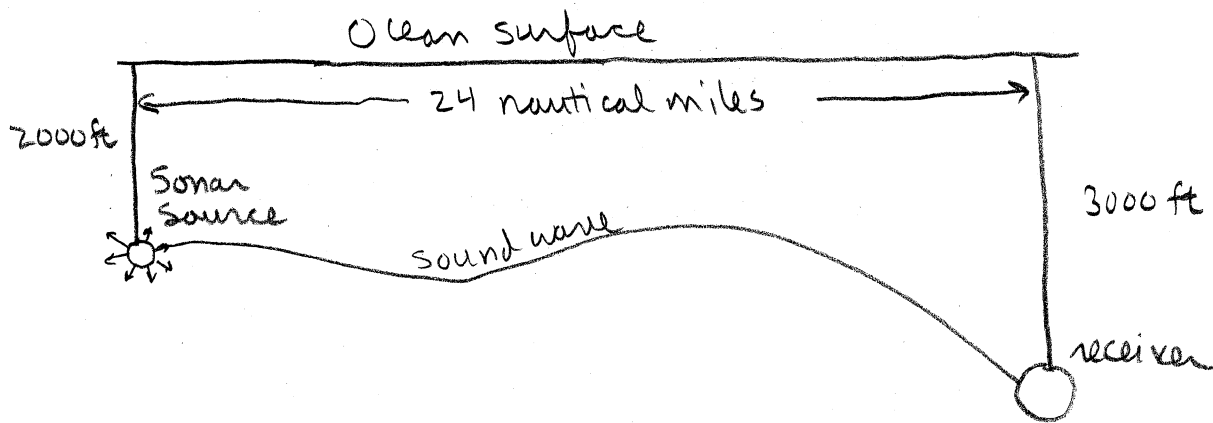 Ocean surface
24 nautical miles
2000ft
Sonar
Source
3000 ft
sound wave
receiver